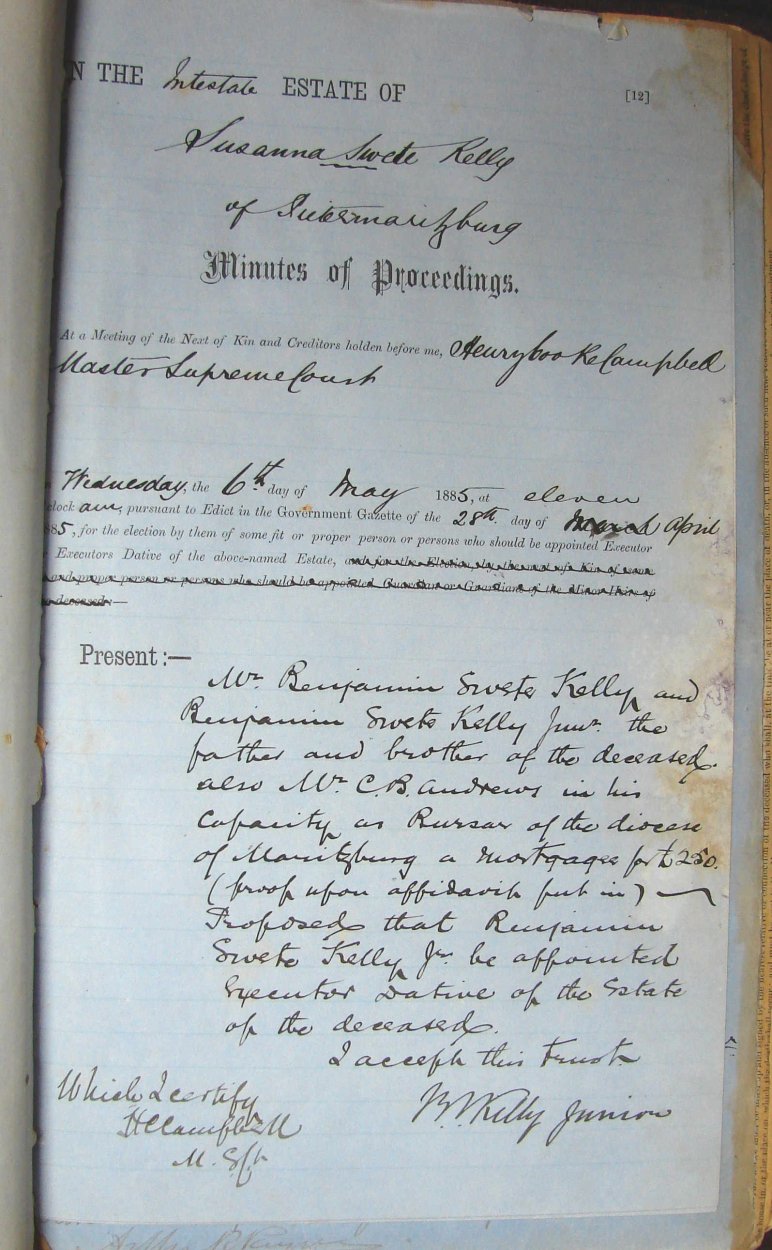 N THE Intestate ESTATE OF
[12]
Susanna Swete Kelly
of Pietermaritzburg
Minutes of Proceedings.
At a Meeting of the Next of Kin and Creditors holden before me, Henry Cooke Campbell
Master Supreme Court
Wednesday, the 6th day of May 1885, at eleven
clock am, pursuant to Edict in the Government Gazette of the 28th day of March April
885, for the election by them of some fit or proper person or persons who should be appointed Executor
Executors Dative of the above-named Estate, and for the Election by the next of Kin of some
and proper person or persons who should be appointed Guardian or Guardians of the Minor Heirs of
deceased:—
Present:—
Mr Benjamin Swete Kelly and
Benjamin Swete Kelly Junr. the
father and brother of the deceased
also Mr C.B. Andrews in his
Capacity as Bursar of the diocese
of Maritzburg a mortgagee for £250.
(proof upon affidavit put in) —
Proposed that Benjamin
Swete Kelly Jr. be appointed
Executor Dative of the Estate
of the deceased.
I accept this trust
Which I certify
B.S. Kelly Junior
HCCampbell
M. S.Ct